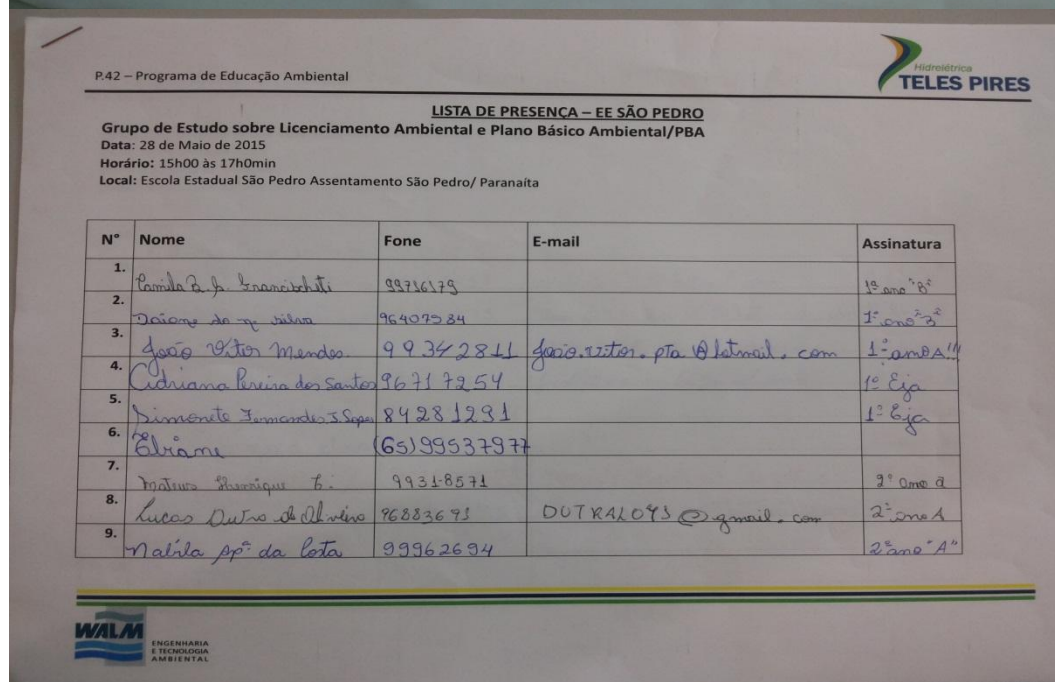 P.42 – Programa de Educação Ambiental
Hidrelétrica
TELES PIRES
LISTA DE PRESENÇA – EE SÃO PEDRO
Grupo de Estudo sobre Licenciamento Ambiental e Plano Básico Ambiental/PBA
Data: 28 de Maio de 2015
Horário: 15h00 às 17h0min
Local: Escola Estadual São Pedro Assentamento São Pedro/ Paranaíta
N° Nome Fone E-mail Assinatura
1. Camila B. 99716179 1º ano "B"
2. Daiane da silva 96407984 1º ano
3. João Vitor Mendes. 99342811 joão.vitor.pta@hotmail.com 1º ano A
4. Adriana Pereira dos Santos 96717254 1º Eja
5. Simonete Fernandes 84281291 1º Eja
6. (65)99537977
7. Mateus Henrique 9931-8571 2º ano a
8. Lucas Dutra de Oliveira 96883693 @gmail.com 2º ano A
9. Nabila Apª da Costa 99962694 2º ano "A"
WALM
ENGENHARIA
E TECNOLOGIA
AMBIENTAL